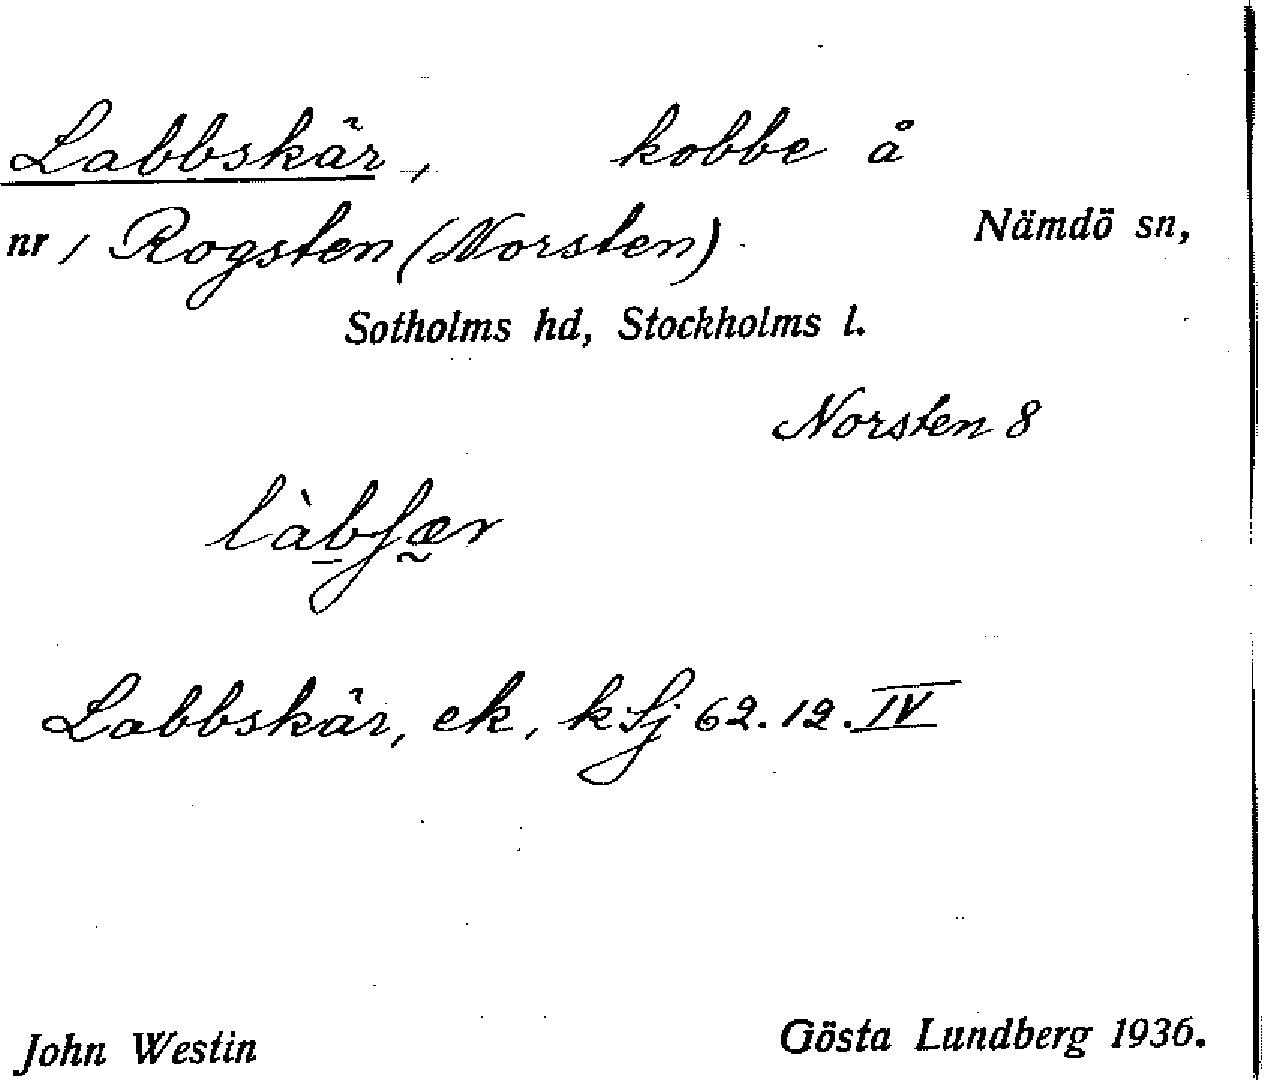 Labbskär, kobbe å
nr 1 Rogsten (Norsten). Nämdö sn,
Sotholms hd, Stockholms l.
Norsten 8
làbʃær
Labbskär, ek, k Sj 62.12.IV
John Westin Gösta Lundberg 1936.